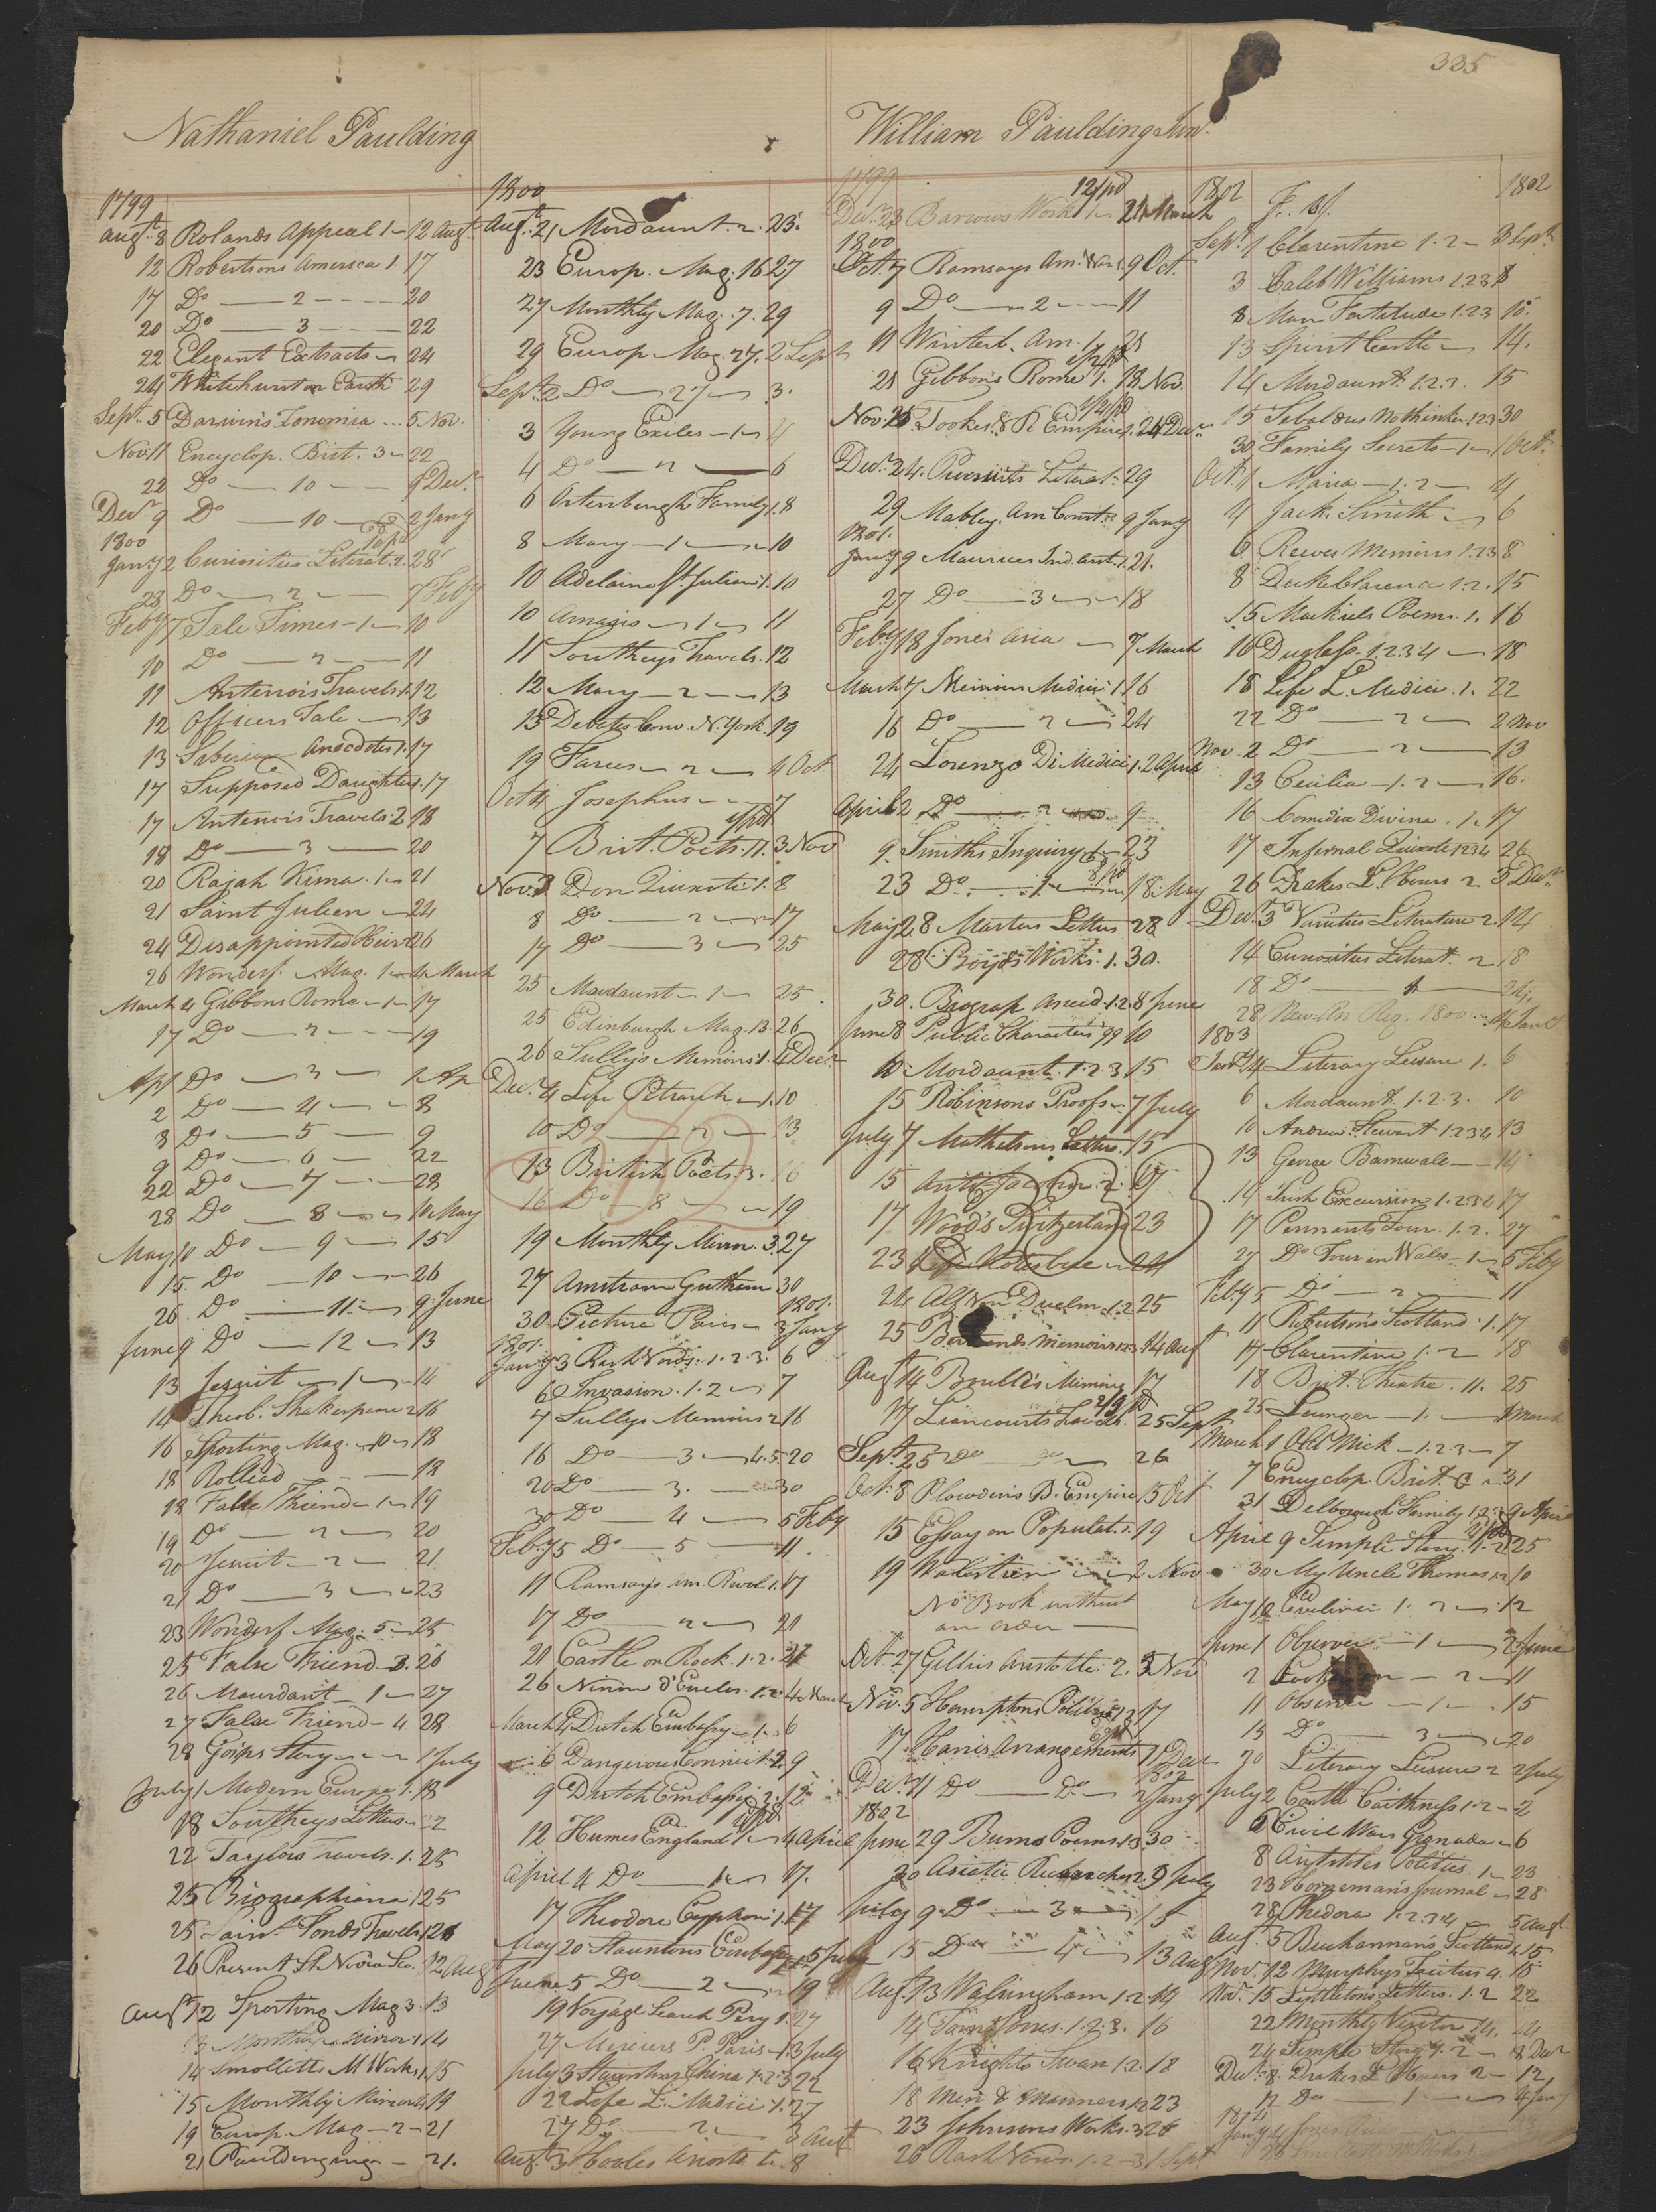 335
Nathaniel Paulding
1799
Augt. 8 Rolands Appeal 1 12 Augt
12 Robertsons America 1. 17
17 Do 2 20
20 Do 3 22
22 Elegant Extracts 24
24 Whitehurst on Earth 29
Sept. 5 Darwin's Zonomia 5 Nov.
Nov. 11 Encyclop. Brit. 3 22
22 Do 10 9 Decr.
Decr 9 Do 10 2 Jany
1800
Jany 2 Curiosities Literat. 2. 28
28 Do 2 7 Feby
Feby 7 Tale Times 1 10
10 Do 2 11
11 Antenors Travels 1. 12
12 Officers Tale 13
13 Siberian Anecdotes 1. 17
17 Supposed Daughter 1. 17
17 Antenors Travels 2 18
18 Do 3 20
20 Rajah Kisna 1 21
21 Saint Julien 24
24 Disappointed Heir 26
26 Wonderf. Mag. 1 4 March
March 4 Gibbons Rome 1 17
17 Do 2 19
Apl Do 3 2 Ap
2 Do 4 8
8 Do 5 9
9 Do 6 22
22 Do 7 28
28 Do 8 10 May
May 10 Do 9 15
15 Do 10 26
26 Do 11 9 June
June 9 Do 12 13
13 Jesuit 1 14
14 Theob. Shakespeare 2 16
16 Sporting Mag. 10 18
18 Rolliad 18
18 False Friend 1 19
19 Do 2 20
20 Jesuit 2 21
21 Do 3 23
23 Wonderf. Mag. 5 25
25 False Friend 3. 26
26 Mourdant 1 27
27 False Friend 4 28
28 Gosips Story 1 July
July 1 Modern Europe 1. 18
18 Southeys Letters 22
22 Taylors Travels. 1. 25
25 Biographiana 1 25
25 Saint Fonds Travels 1 26
26 Present St Nova Sco. 12 Aug
Augt 12 Sporting Mag 3. 13
13 Monthly Mirror 1 14
14 Smolletts M Works 1. 15
15 Monthly Mirror 4 19
19 Europ. Mag 2 21
21 21.
1800
Augt. 21 Mordaunt 2. 23.
23 Europ. Mag. 16 27
27 Monthly Mag. 7. 29
29 Europ. Mag. 27. 2 Sept
Sept. 2 Do 27 3.
3 Young Exiles 1 4
4 Do 2 6
6 Ortenburgh Family 1. 8
8 Mary 1 10
10 Adelaine St Julian 1. 10
10 Amasis 1 11
11 Southeys Travels. 12
12 Mary 2 13
13 Debates Conv N. York. 19
19 Farces 2 4 Oct
Oct 4 Josephus 7
7 Brit. Poets. 11. 3 Nov
Nov. 3 Don Quixote 1. 8
8 Do 2 17
17 Do 3 25
25 Mordaunt 1 25.
25 Edinburgh Mag. 13. 26
26 Sullys Memoirs 1. 4 Decr
Decr. 4 Life Petrarch 1. 10
10 Do 2 13
13 British Poets. 3. 16
16 Do 8 19
19 Monthly Mirror. 3. 27
27 30
30 Picture Paris 3 Jany 1801.
1801.
Jany 3 Rash Vows. 1. 2. 3. 6
6 Invasion. 1. 2 7
7 Sullys Memoirs 2 16
16 Do 3 4. 5. 20
20 Do 3. 30
30 Do 4 5 Feby
Feby 5 Do 5 11
11 Ramsays Am. Revol. 1. 17
17 Do 2 21
21 Castle on Rock. 1. 2. 27
26 Ninon d'Enclos. 1. 2 4 March
March 4 Dutch Embassy 1. 6
6 Dangerous Connect. 1. 2. 9
9 Dutch Embassy 2. 12
12 Humes England 1 4 April
April 4 Do 1 17.
17 Theodore Cyphon 1. 17
May 20 Stauntons Embassy 1. 5 July
June 5 Do 2 19
19 Voyage Search Pery 1. 27
27 Merciers P. Paris 1. 3 July
July 3 Stauntons China 1. 2. 3 22
22 Life L. Medici 1. 27
27 Do 2 3 Augt
Augt. 3 Hooles Ariosto 1. 8
William Paulding Junr.
1799
Decr. 23 Barrows Work 1 24 March
1800
Oct. 7 Ramsays Am. War 1. 9 Oct.
9 Do 2 11
11 Winterb. Am. 1 21
21 Gibbons Rome 1. 18 Nov.
Nov. 25 Tookes R Empire 1. 24 Decr
Decr. 24. Pursuits Literat. 29
29 Mabley. Am Const. 9 Jany
1801.
Jany 9 Maurices Ind. Ant. 1. 21.
27 Do 3 18
Feby 18 Jones Asia 7 March
March 7 Memoirs Medici 1. 16
16 Do 2 24
24 Lorenzo Di Medici 1. 2 April
April 2 Do 2 9
9. Smiths Inquiry 1 23
23 Do 1 18. May
May 28 Martens Letters 28
28 Boyds Works. 1. 30.
30. Biograp. Anecd. 1. 2. 8 June
June 8 Public Characters 99 10
10 Mordaunt. 1. 2. 3 15
15 Robinsons Proofs 7 July
July 7 Mathesons Letters 15
15 Anti Jacobin. 2. 17
17 Wood's Switzerland 23
23 Life Kotzebue 24
24 Alf Von Duelm 1. 2 25
25 Memoirs 1 2 3. 14 Augt
Augt 14 17
17 Liancourts Travels. 25 Sept
Sept. 25 Do 26
Oct. 8 Plowdens B. Empire 15 Oct
15 Essay on Populat. 1. 19
19 2 Nov
No Book without
an order
Oct. 27 Gillies Aristotle. 2. 5 Nov
Nov. 5 Hamptons Polibius 1 2 17
17 Harris Arrangements 11 Decr
Decr. 11 Do Do 2 Jany 1802
1802
June 29 Burns Poems 1 2 30
30 Asiatic Researches 2. 9 July
July 9 Do 3 15
15 Do 4 13 Aug
Aug. 13 Walsingham 1. 2 14
14 Tom Jones. 1. 2. 3. 16
16 Knights Swan 1. 2. 18
18 Men & Manners 1. 2 23
23 Johnsons Works. 3 26
26 Rash Vows. 1. 2 3 1 Sept
1802 1802
Sept. 1 Clarentine 1. 2 3 Sept.
3 Caleb Williams 1. 2 3 8
8 Man Fortitude 1. 2 3 13.
13 Spirit Castle 14.
14 Mordaunt. 1. 2. 3. 15
15 Sebaldus Nothanker. 1. 2 3 30
30 Family Secrets 1 1 Oct.
Oct. 1 Maria 1. 2 4
4 Jack Smith 6
6 Reeves Memoirs 1. 2. 3 8
8 Duke Clarence 1. 2. 15
15 Mackiels Poems. 1. 16
16 Duglass. 1. 2. 3 4 18
18 Life L. Medici. 1. 22
22 Do 2 2 Nov
Nov. 2 Do 2 13
13 Cecilia 1. 2 16.
16 Comedia Divina. 1. 17
17 Infernal Quixote 1 2 3 4 26
26 Drakes L. Hours 2 3 Decr.
Decr. 3 Varieties Literature 2. 14
14 Curiosities Literat. 2 18
18 Do 1
28 New An Reg. 1800
1803
Jany 4 Literary Leisure 1. 6
6 Mordaunt. 1. 2. 3. 10
10 Andrew Stewart 1. 2 3 4 13
13 George Barnwale 14
14 Irish Excursion 1. 2 3 4 17
17 Pennants Tour. 1. 2. 27
27 Do Tour in Wales 1 5 Feby
Feby 5 Do 2 11
11 Robertsons Scotland. 1. 17
17 Clarentine 1. 2 18
18 Brit. Theatre. 11. 25
25 Lounger 1. 1 March
March 1 Old Nick 1. 2 3 7
7 Encyclop. Brit. 31
31 Delborough Family 1. 2. 3. 9 April
April 9 Simple Story. 1. 2 25
30 My Uncle Thomas 1. 2 10
May 10 Emelina 1. 2 12
June 1 Observer 1 2 June
2 2 11
11 Observer 1 15
15 Do 3 20
20 Literary Leisure 2 2 July
July 2 Castle Caithness 1. 2 2
Civil Wars Granada 6
8 Aristotles Politics. 1 23
23 Hornemans Journal 28
28 Phedora 1. 2. 3 4 5 Aug.
Aug. 5 Buchannans Scotland 15
Nov. 12 Murphys Tacitus 4. 15
Nov. 15 Littletons Letters. 1. 2 22
22 Monthly Visitor 14. 24
24 Simple Story 1. 2 8 Decr
Decr. 8. Drakes L Hours 2 12
12 Do 1 4 Jany